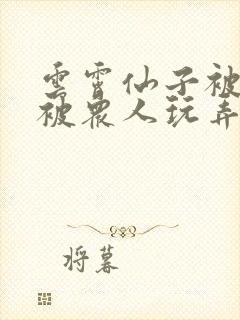 雲霄仙子被
被眾人玩弄
将暮